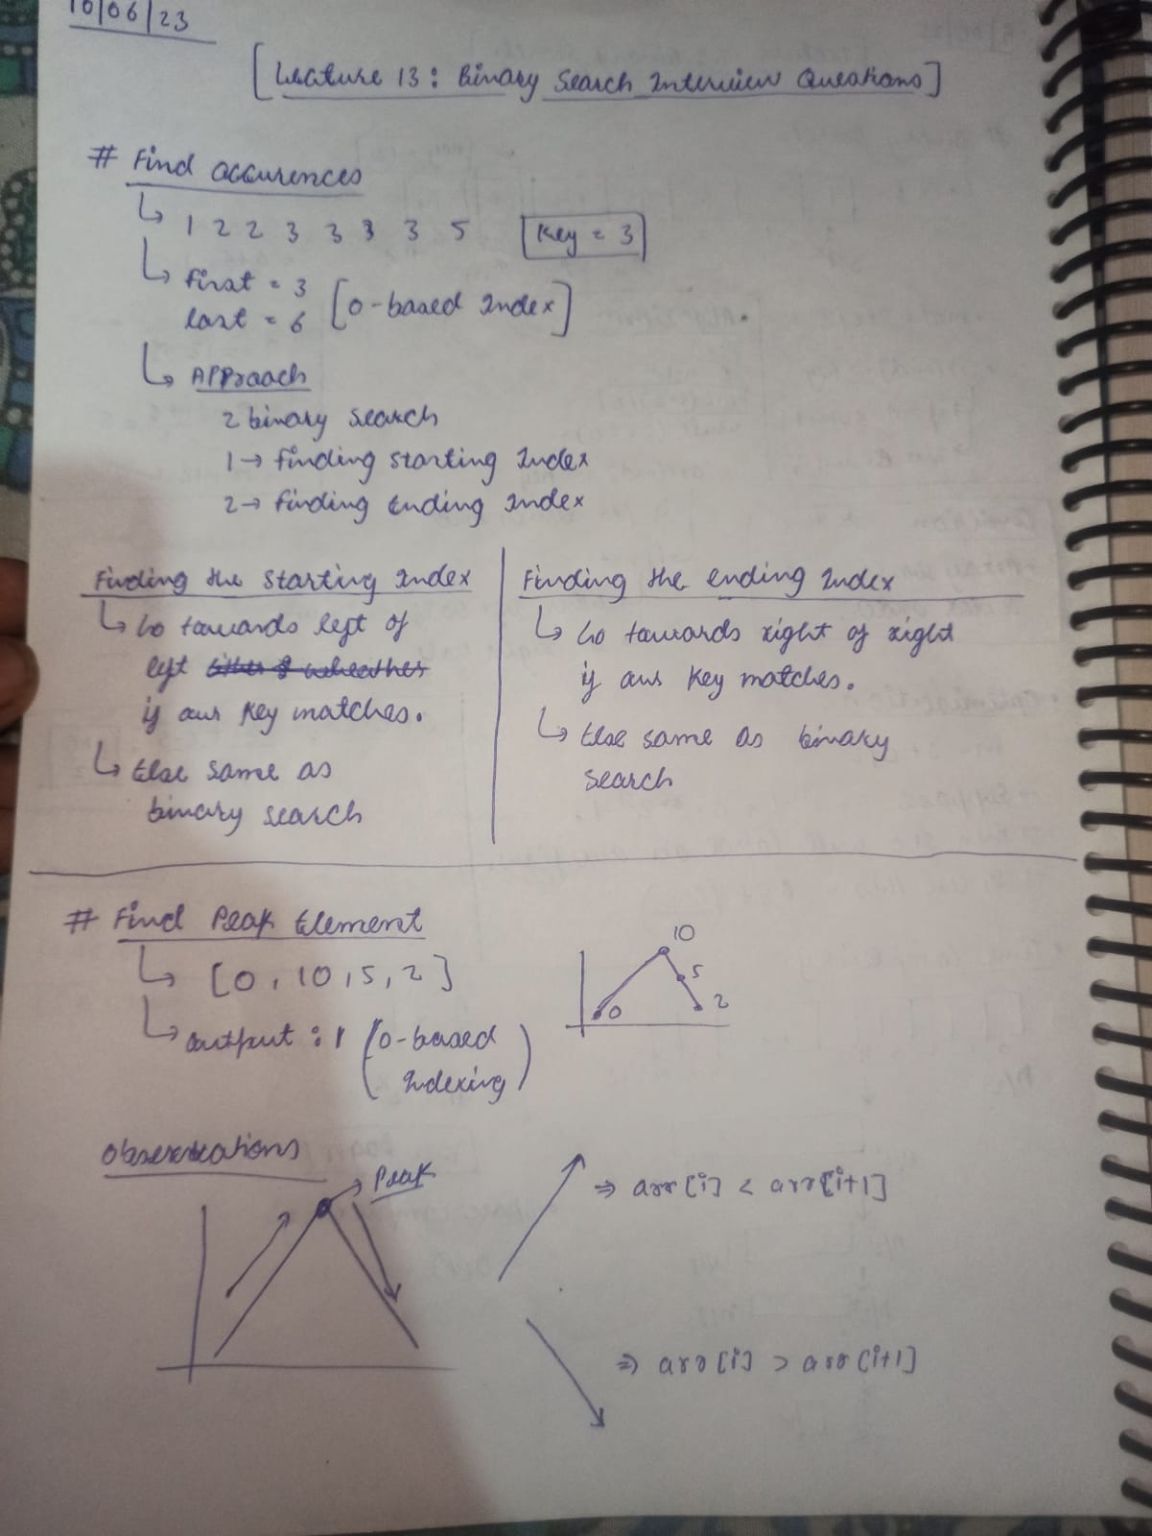 10/06/23
[Lecture 13: Binary Search Interview Questions]
# Find Occurences
1 2 2 3 3 3 3 5 Key = 3
first = 3
last = 6 [0-based Index]
Approach
2 binary search
1→ Finding starting Index
2→ Finding Ending Index
Finding the Starting Index
Go towards left of
left
if our key matches.
Else same as
binary search
Finding the ending Index
Go towards right of right
if our key matches.
Else same as binary
search
# Find Peak Element
[0, 10, 5, 2]
Output : 1 (0-based
Indexing)
10
5
0
2
Observations
Peak
⇒ arr[i] < arr[i+1]
⇒ arr[i] > arr[i+1]